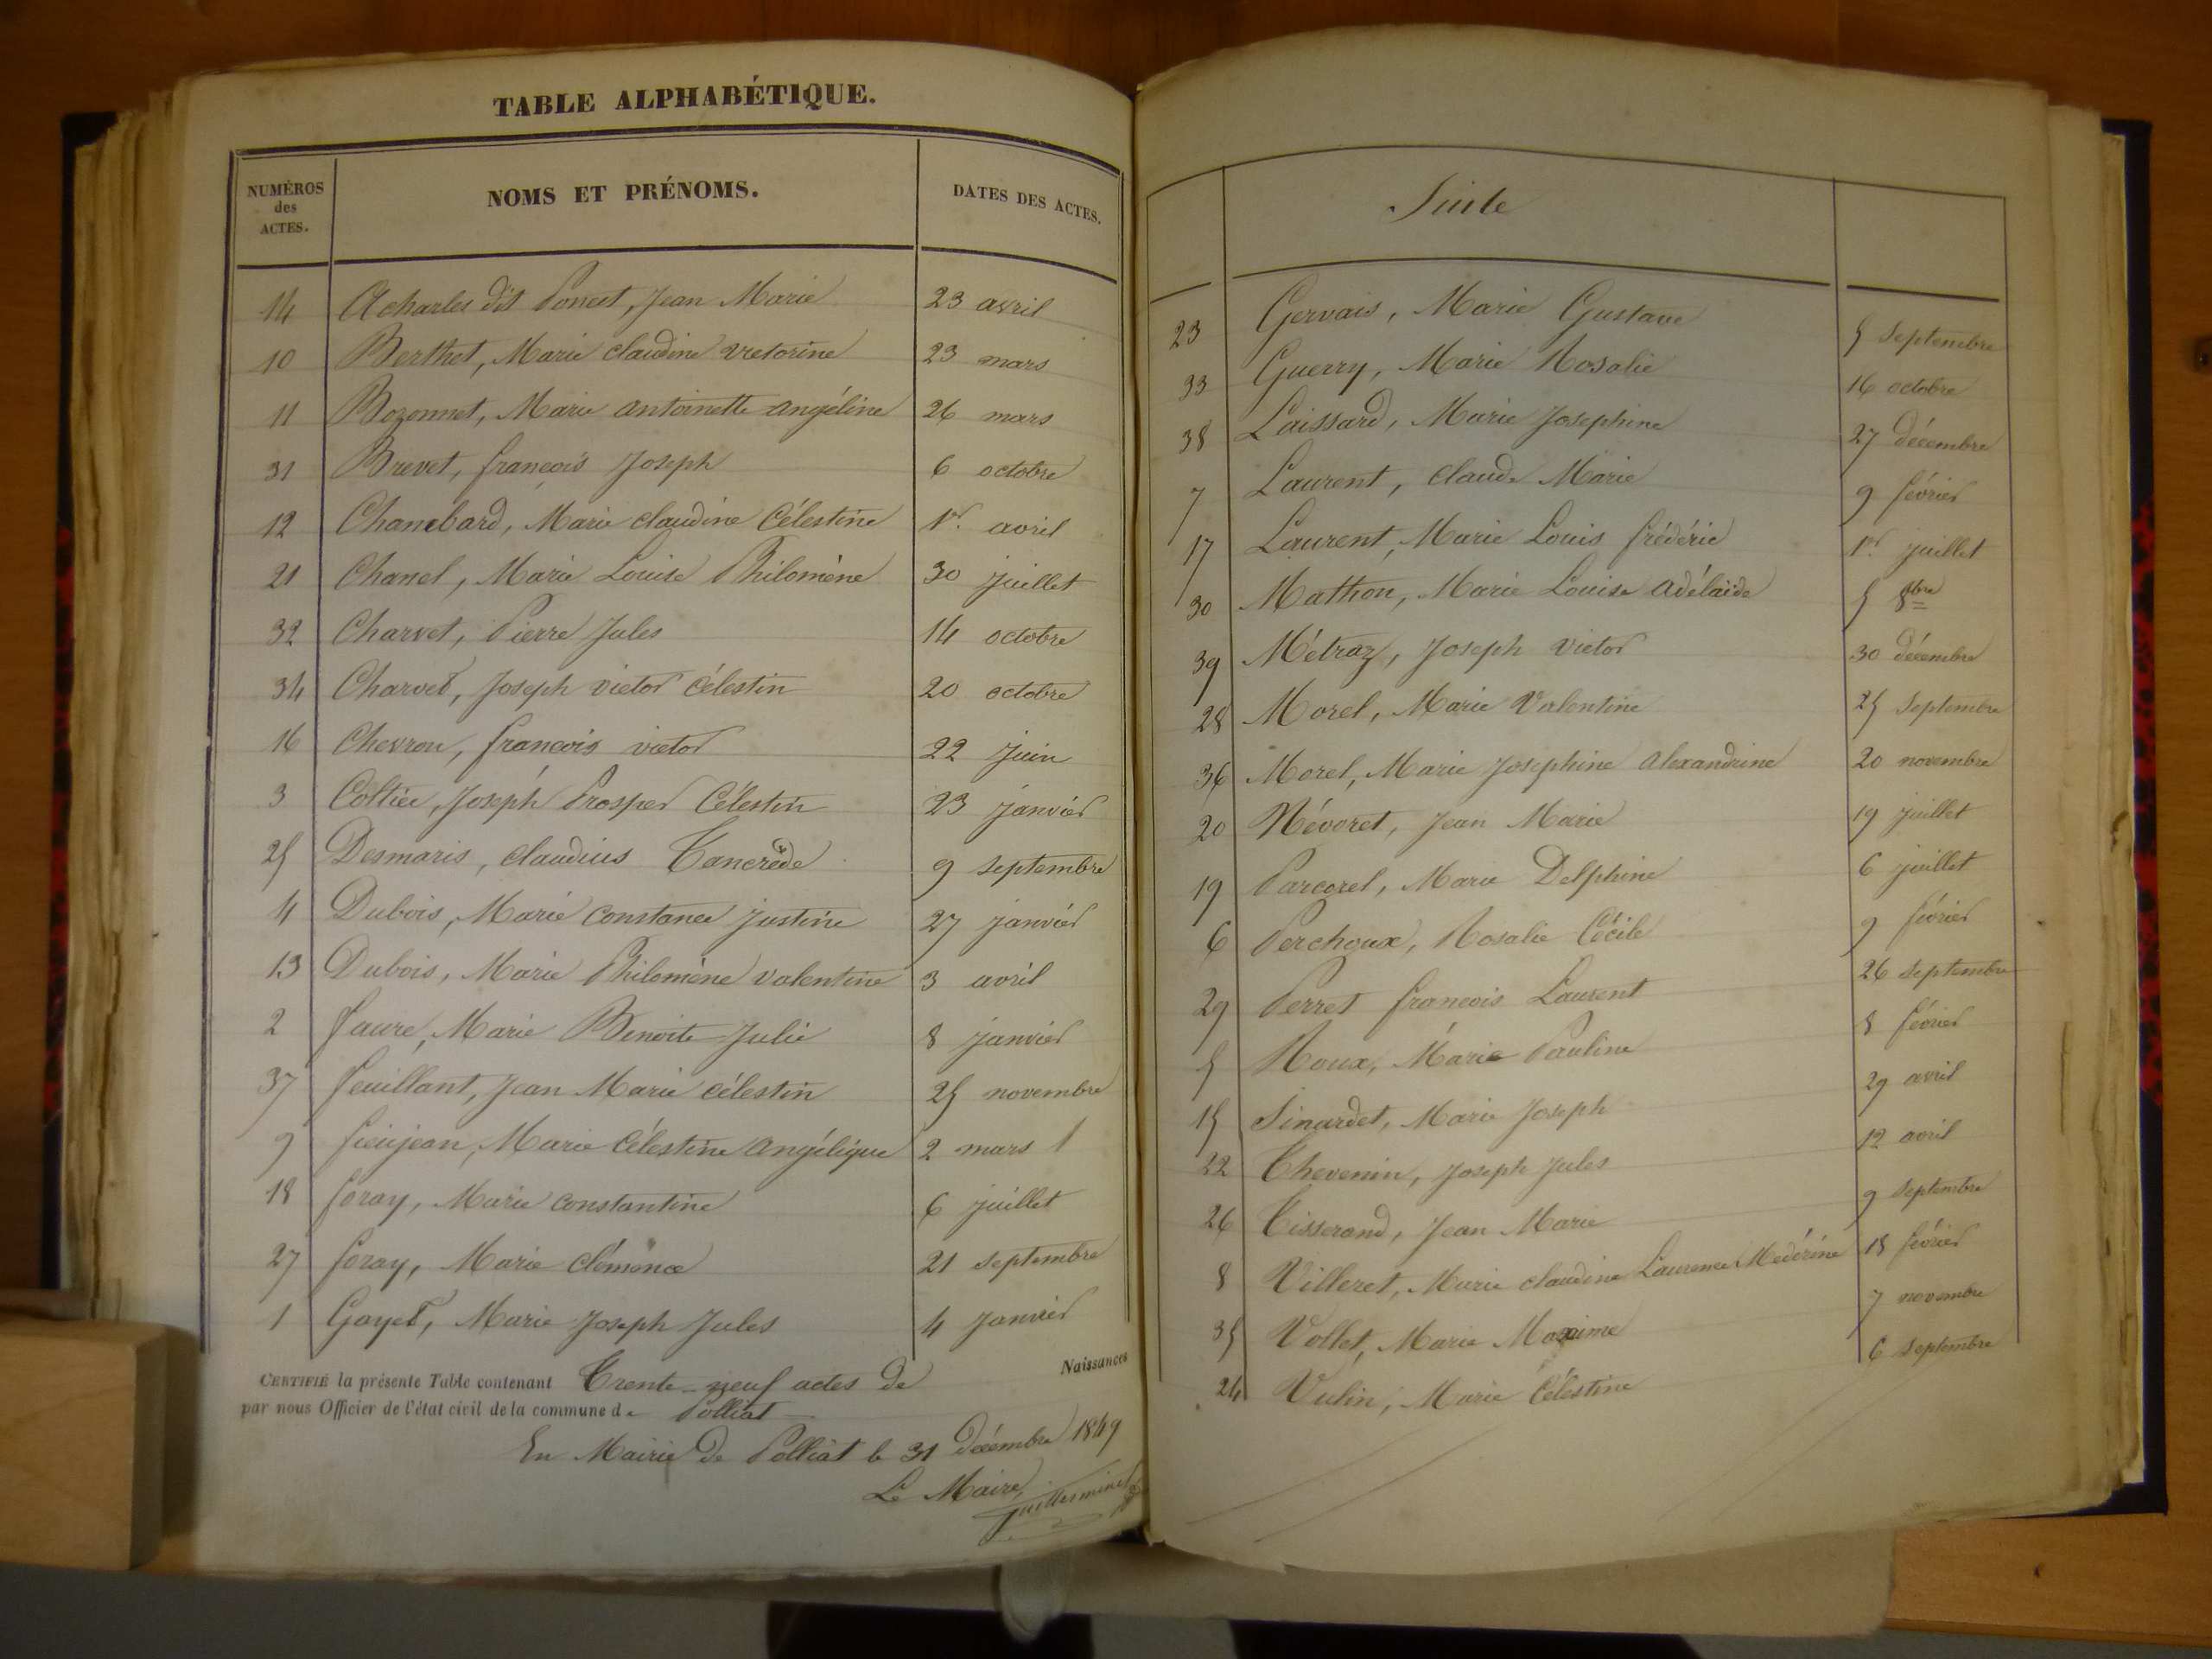 TABLE ALPHABÉTIQUE.
NUMÉROS des ACTES. NOMS ET PRÉNOMS. DATES DES ACTES.
14 Acharles dit Poncet, Jean Marie 23 avril
10 Berthet, Marie claudine victorine 23 mars
11 Bozonnet, Marie antoinette angéline 26 mars
31 Brevet, françois Joseph 6 octobre
12 Chanebard, Marie claudine Célestine 1er. avril
21 Chanel, Marie Louise Philomène 30 juillet
32 Charvet, Pierre Jules 14 octobre
34 Charvet, Joseph victor célestin 20 octobre
16 Chevron, françois victor 22 juin
3 Joseph Prosper Célestin 23 janvier
25 Desmaris, claudius Tancrède 9 septembre
4 Dubois, Marie constance justine 27 janvier
13 Dubois, Marie Philomène valentine 3 avril
2 faure, Marie Benoite Julie 8 janvier
37 feuillant, Jean Marie célestin 25 novembre
9 fieujean, Marie célestine angélique 2 mars
18 foray, Marie constantine 6 juillet
27 foray, Marie clémence 21 septembre
1 Gayet, Marie Joseph Jules 4 janvier
CERTIFIÉ la présente Table contenant Trente-neuf actes de Naissances
par nous Officier de l'état civil de la commune de Polliat
En Mairie de Polliat le 31 décembre 1849
Le Maire,
Suite
23 Gervais, Marie Gustave 5 septembre
33 Guerry, Marie Rosalie 16 octobre
38 Laissard, Marie Josephine 27 décembre
7 Laurent, claude Marie 9 février
17 Laurent, Marie Louis frédéric 1er juillet
30 Mathon, Marie Louise adélaïde 5 8bre
39 Métraz, Joseph victor 30 décembre
28 Morel, Marie Valentine 25 septembre
36 Morel, Marie Josephine alexandrine 20 novembre
20 Névoret, Jean Marie 19 juillet
19 Parcorel, Marie Delphine 6 juillet
6 Perchoux, Rosalie Cécile 9 février
29 Perret françois Laurent 26 septembre
5 Roux, Marie Pauline 8 février
15 Sinardet, Marie Joseph 29 avril
22 Thevenin, Joseph Jules 12 avril
26 Tisserand, Jean Marie 9 septembre
8 Villeret, Marie claudine Laurence Medérine 18 février
35 Vollet, Marie Maxime 7 novembre
24 Vulin, Marie Célestine 6 septembre